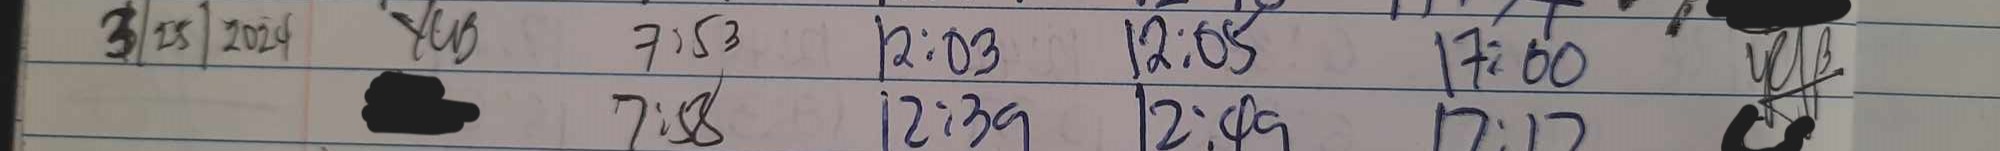 3/25/2024 YCB 7:53 12:03 12:05 17:00
7:58 12:39 12:49 17:17